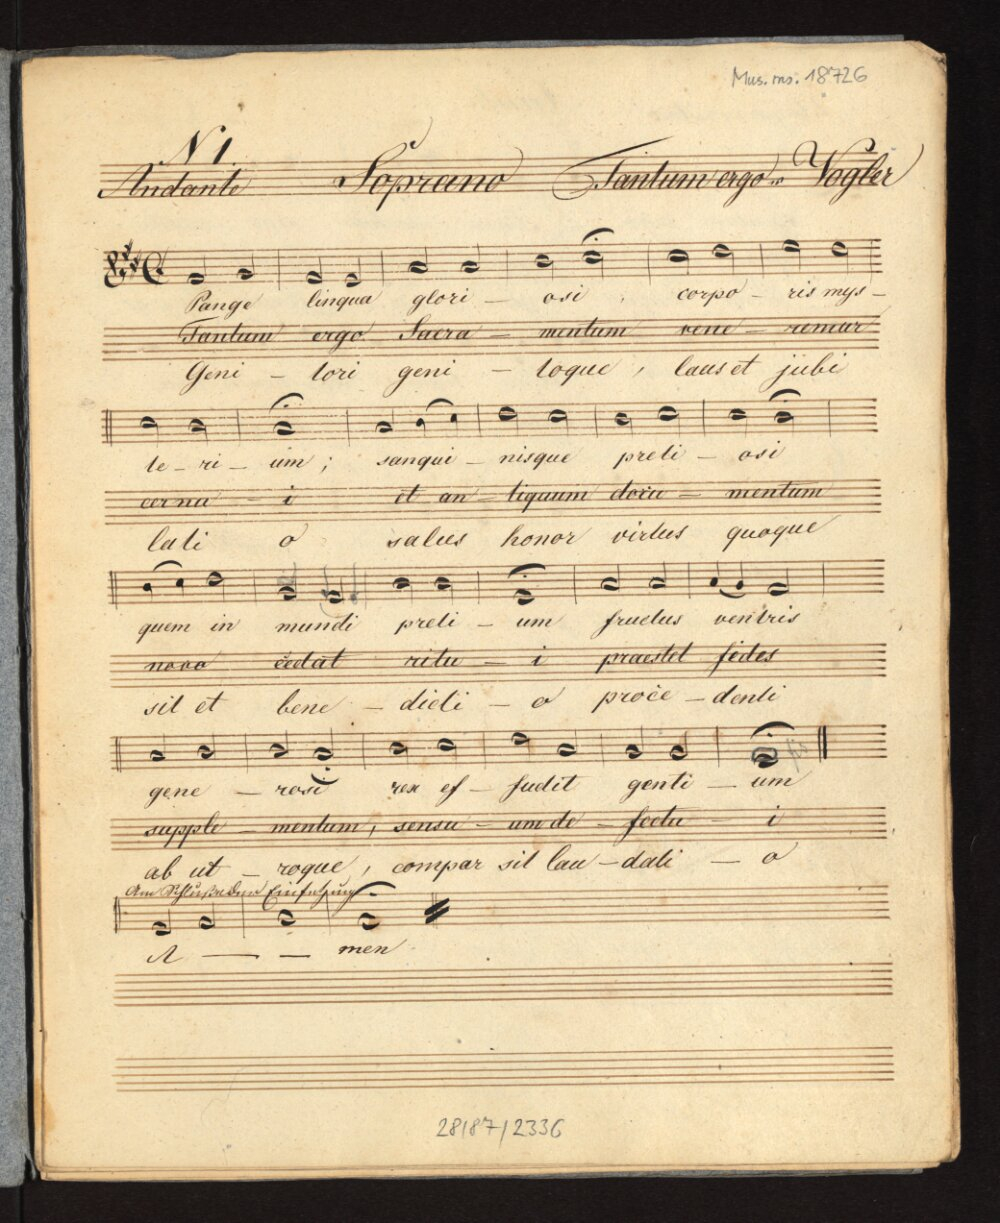 Mus. ms. 18726
N 1.
Andante Soprano Tantum ergo v. Vogler
Pange lingua glori – osi, corpo – ris mys –
Tantum ergo Sacra – mentum vene – remur
Geni – tori geni – toque, laus et jubi
te – ri – um; sangui – nisque preti – osi
cernu – i et an – tiquum docu – mentum
lati o salus honor virtus quoque
quem in mundi preti – um fructus ventris
novo cedat ritu – i praestet fides
sit et bene – dicti – o proce – denti
gene – rosi rex ef – fudit genti – um
fis
supple – mentum, sensu – um de – fectu – i
ab ut – roque, compar sit lau – dati – o
Am Schluße der Einsetzung
A – – men
28/87/2336